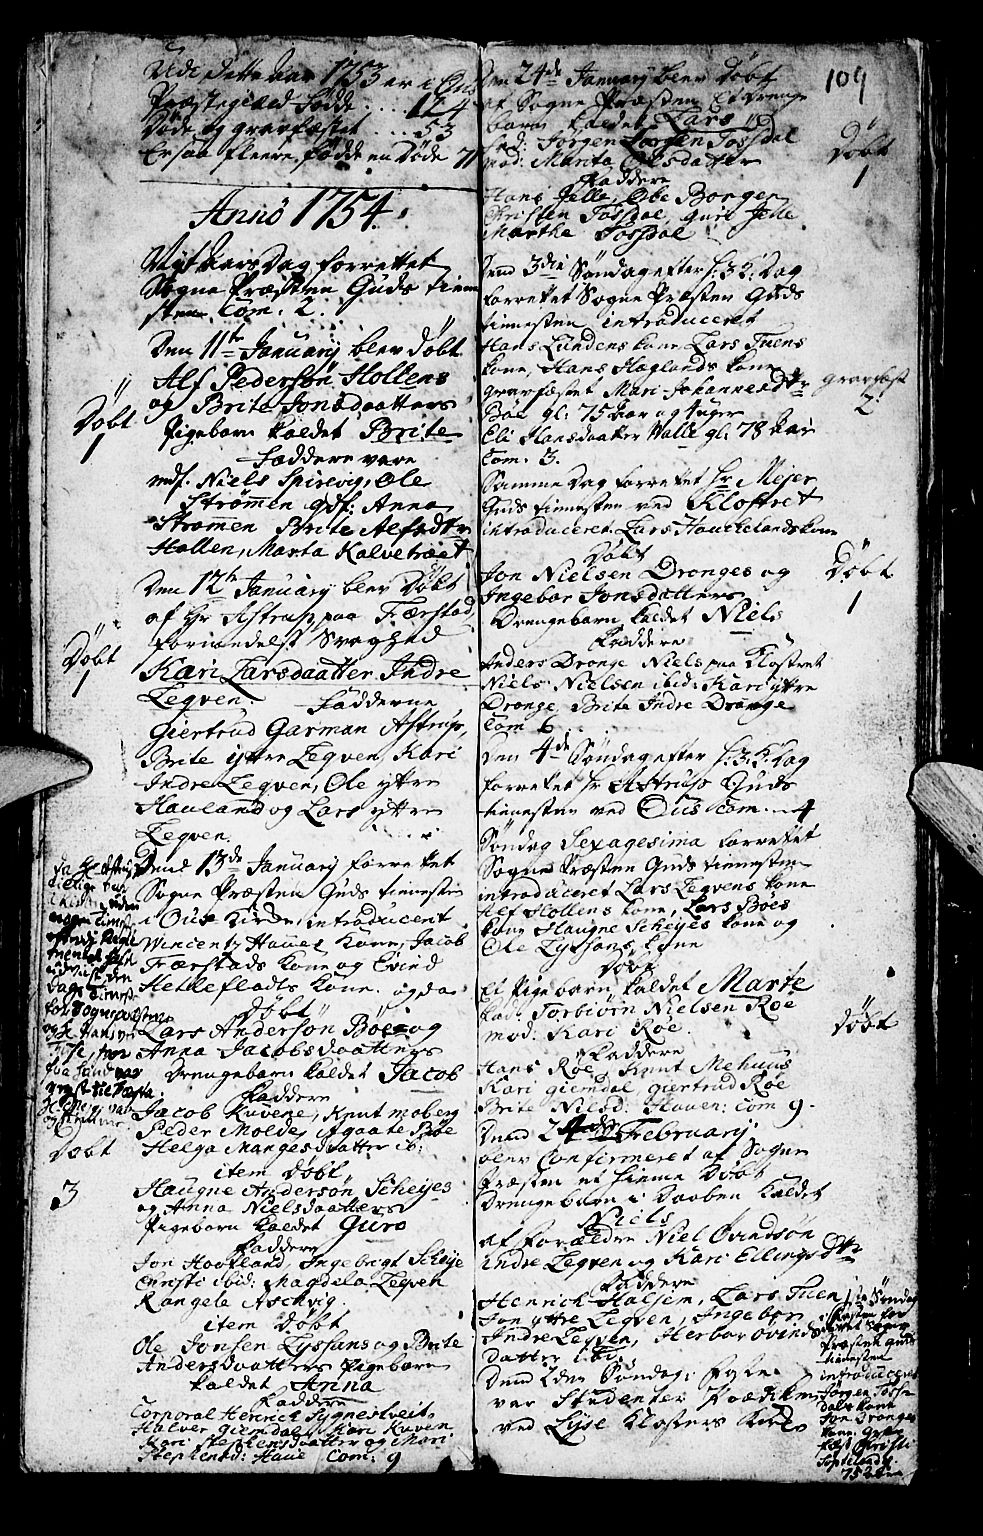 Udi dette aar 1753 er i Ous
Præstegield Fødde .... 124
Døde og gravfæstet ... 53
Ersaa fleere fødde en Døde 71
Anno 1754.
Nyt aars Dag forrettet
Sogne Præsten Guds tienne
sten Com: 2.
Den 11te January blev Døbt
Alf Pederssøn Hollens
og Brite Jonsdaatters
Pigebarn kaldet Brite
Faddere vare
mdf. Niels Spirevig, Ole
Strømmen qdf: Anna
Strømen Brite Alfsdtr
Hollen, Marta Kalvetræet
Døbt
1
Den 12te January blev Døbt
af Hr Astrup paa Færstad,
formedelst Svaghed
Kari Larsdaatter Indre
Legven. Fadderne
Giertrud Garman Astrup,
Brite yttre Legven Kari
Indre Legven, Ole ytre
Hauland og Lars yttre
Legven.
Døbt
1
Dend 13de January forrettet
Sogne Præsten Guds tiennesten
i Ous Kirke, introducert
Wincenty Hawes Kone, Jacob
Færstads Kone og Evind
Hetlefladts Kone. og da
Døbt
Lars Anderssøn Böe og
Anna Jacobsdaatters
Drengebarn kaldet Jacob
Faddere
Jacob Kuvene, Knut Moberg
Peder Molde, Agaate Böe
Helga Mangesdaatter ib:
item Døbt
Haugne Anderssøn Scheyes
og Anna Nielsdaatters
Pigebarn kaldet Guro
Faddere
Jon Hoofland, Ingebrigt Scheye
Christi ibid: Magdela Legven
Rangele Aschvig
item Døbt
Ole Jonsen Lyssans og Brite
Andersdaatters Pigebarn
kaldet Anna
Faddere
Corporal Henrick Lygnestveit
Halver Giemdal, Kari Kuven
Kari Stephensdaatter og Mari
Stephensd: Haue Com: 9
Døbt
3
109
Den 24de January blev Døbt
af Sogne Præsten Et Drenge
barn kaldet Lars
fad: Jörgen Larsen Tøssdal
mod: Marita Olsdatter
Faddere
Hans Jelle, Obe Borgen
Christen Tøssdal, Guri Jelle
Marthe Tossdal
Døbt
1
Dend 3die Søndag efter h: 3 K: Dag
forrettet Sogne Præsten Guds
tiennesten introduceret
Hans Lundens kone Lars Tuens
kone, Hans Haglands kone
gravfæstet Mari Johannesdtr
Böe gl: 75 aar og 4 uger
Eli Hansdaatter Walle gl: 78 aar
Com: 3.
gravfæst
2
Samme Dag forrettet Hr Mejer
Guds tiennesten ved Klostret
introduceret Lars Hauckelands kone
Døbt
Jon Nielsen Dronges og
Ingebor Jonsdatters
Drengebarn kaldet Niels
Faddere
Anders Dronge Niels paa Klostret
Niels Nielsen ibid: Kari yttre
Dronge, Brite Indre Dronge
Com 6
Døbt
1
Den 4de Søndag efter h: 3 K: Dag
forrettet Hr Astrup Guds
tiennesten ved Ous com: 4
Søndag Sexagesima forrettet
Sogne Præsten Guds tiennesten
introduceret Lars Legvens kone
Alf Hollens kone, Lars Böes
kone Haugne Scheyes kone og
Ole Lyssans kone
Døbt
Et Pigebarn, kaldet Marte
fad: Torbiörn Nielsen Röe
mod: Kari Röe.
Faddere
Hans Röe, Knut Mehuus
Kari giemdal, giertrud Röe
Brite Nielsd: Hauen: Com 9.
Døbt
Dend 2 February
blev Confirmeret af Sogne
Præsten et hieme Døbt
Drengebarn i Daaben kaldet
Niels
af forældre Niel Ovindsøn
indre Legven og Kari Ellingsdtr
Faddere
Henrick Halsem, Lars Tuen
Jon yttre Legven, Ingebor
Indre Legven, Herbor Ovinds
datter ibid.
Dend 2den Søndag i Faste
var Studenter Prædiken
ved Lyse Klosters Kirke
Søndag
i fasten for
rettet Sogne
Præsten guds
tiennesten
introduceret
Jörgen Tosse
dals kone
Jon Dronges
kone. Grav
fæst Christi
75 aar